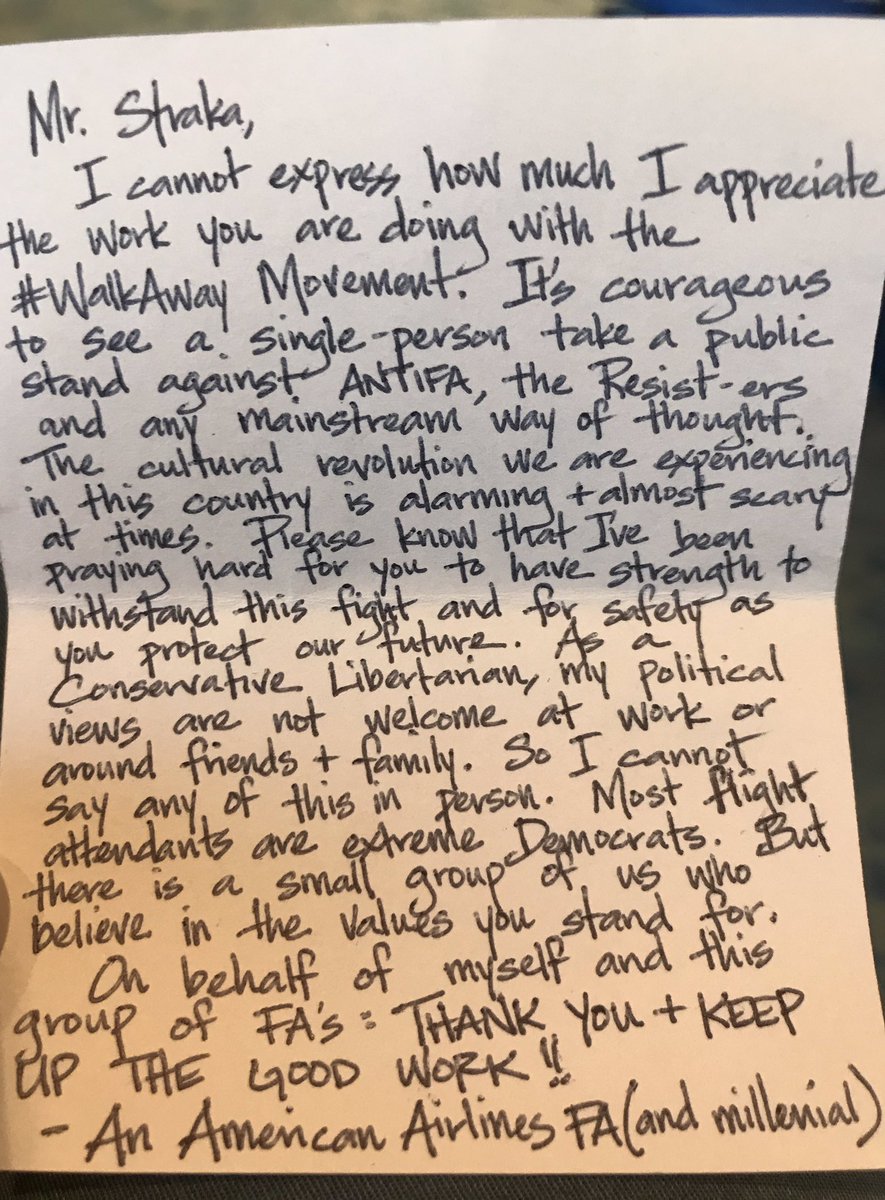 Mr. Straka,
I cannot express how much I appreciate
the work you are doing with the
#WalkAway Movement. It's courageous
to see a single-person take a public
stand against ANTIFA, the Resist-ers
and any mainstream way of thought.
The cultural revolution we are experiencing
in this country is alarming + almost scary
at times. Please know that I've been
praying hard for you to have strength to
withstand this fight and for safety as
you protect our future. As a
Conservative Libertarian, my political
views are not welcome at work or
around friends + family. So I cannot
say any of this in person. Most flight
attendants are extreme Democrats. But
there is a small group of us who
believe in the values you stand for.
On behalf of myself and this
group of FA's: THANK YOU + KEEP
UP THE GOOD WORK!!
- An American Airlines FA (and millenial)